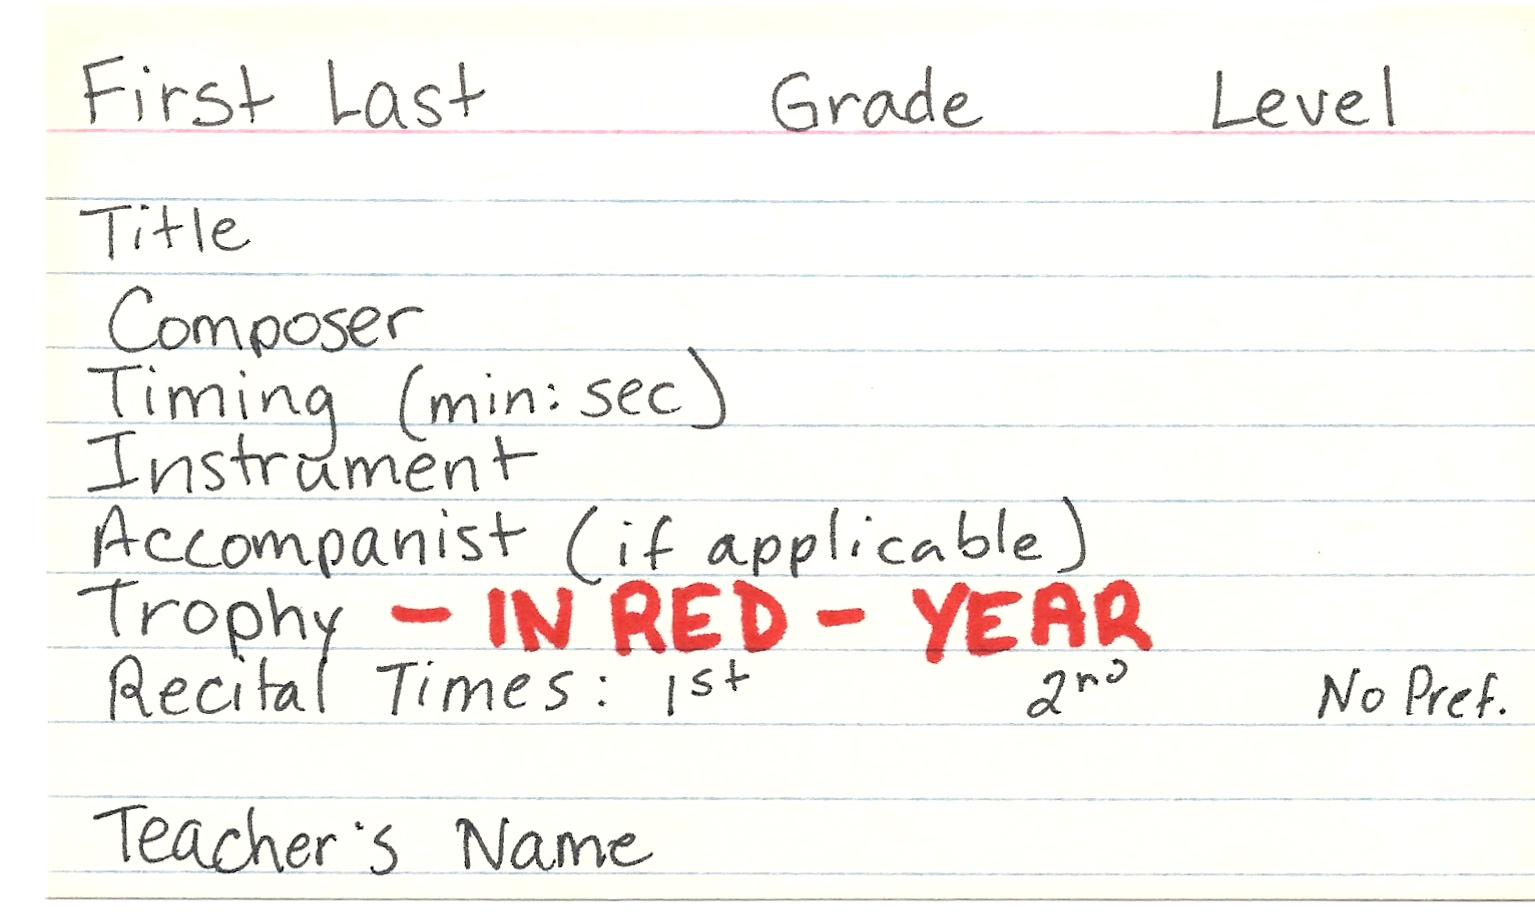 First Last Grade Level
Title
Composer
Timing (min: sec)
Instrument
Accompanist (if applicable)
Trophy - IN RED - YEAR
Recital Times: 1st 2nd No Pref.
Teacher's Name